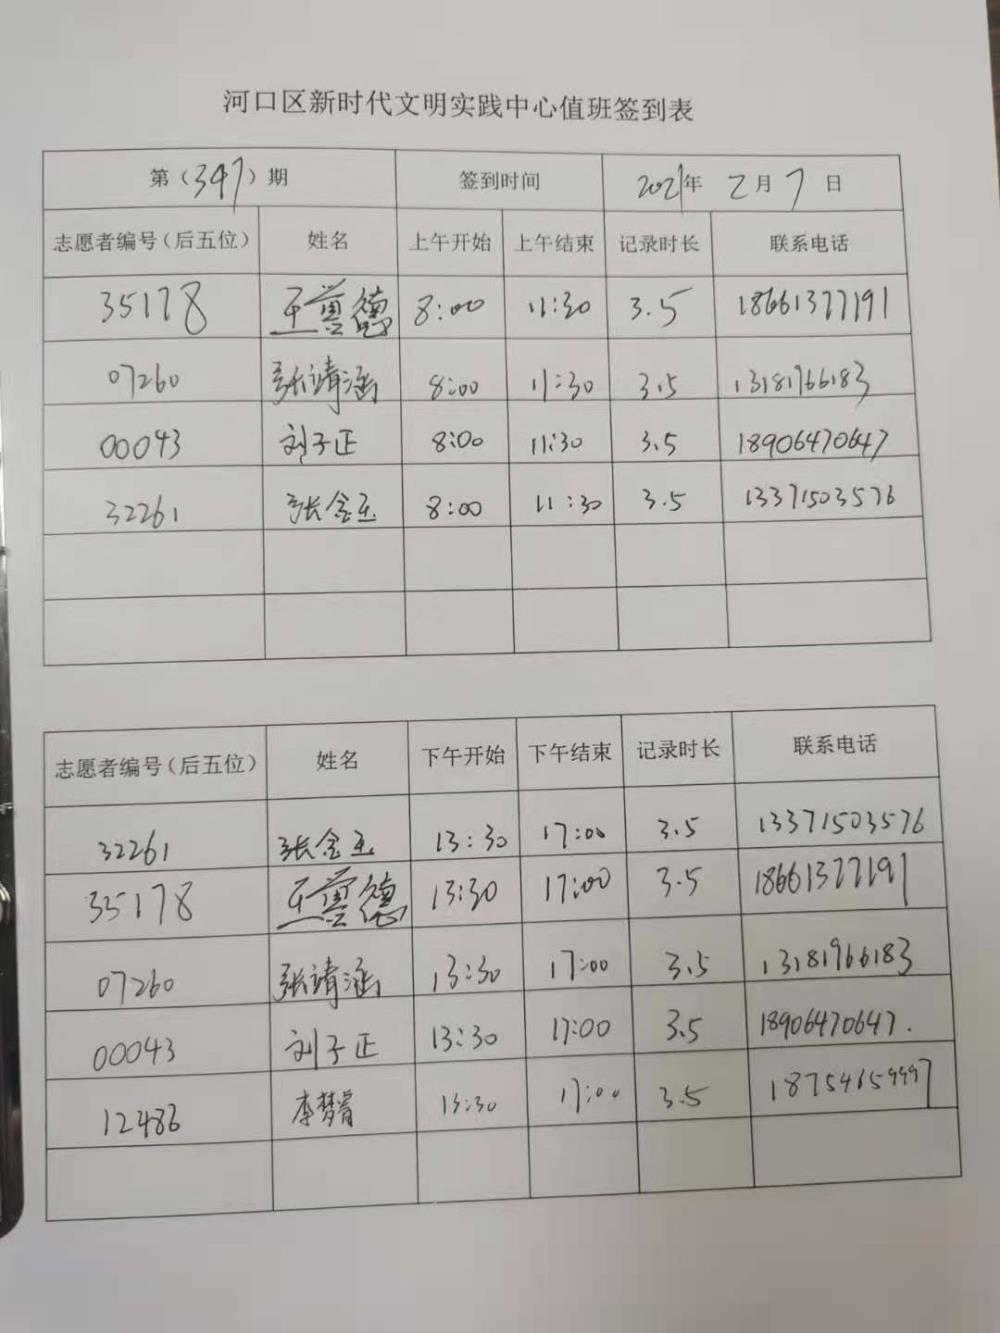 河口区新时代文明实践中心值班签到表
第（347）期 签到时间 2021年 2月 7 日
志愿者编号（后五位） 姓名 上午开始 上午结束 记录时长 联系电话
35178 8:00 11:30 3.5 18661377191
07260 张靖涵 8:00 11:30 3.5 13181966183
00043 刘子正 8:00 11:30 3.5 18906470647
32261 张金玉 8:00 11:30 3.5 13371503576
志愿者编号（后五位） 姓名 下午开始 下午结束 记录时长 联系电话
32261 张金玉 13:30 17:00 3.5 13371503576
35178 13:30 17:00 3.5 18661377191
07260 张靖涵 13:30 17:00 3.5 13181966183
00043 刘子正 13:30 17:00 3.5 18906470647.
12486 13:30 17:00 3.5 18754659997